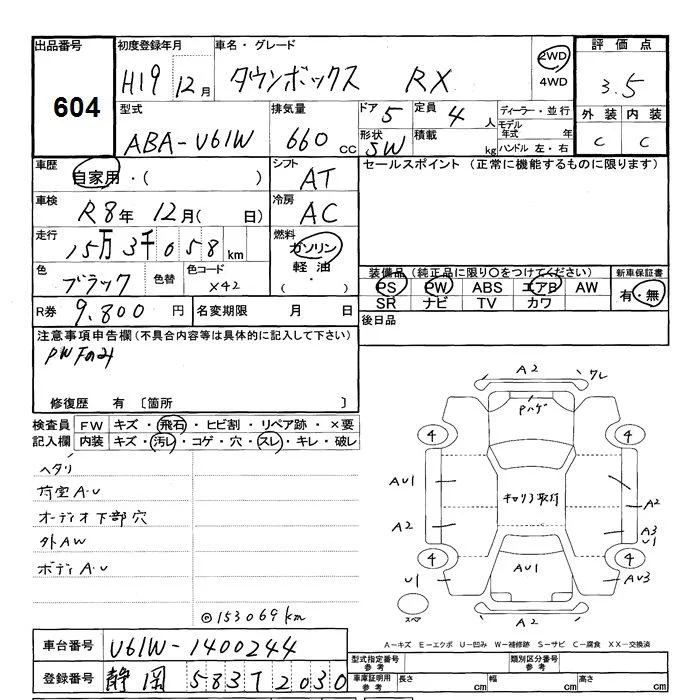 出品番号
604
初度登録年月
H19 12月
車名・グレード
タウンボックス RX
2WD
4WD
評価点
3.5
外装 内装
C C
型式
ABA-U61W
排気量
660 cc
ドア 5
定員 4 人
形状 SW
積載 kg
ディーラー・並行
モデル年式 年
ハンドル 左・右
車歴
自家用・( )
シフト
AT
セールスポイント (正常に機能するものに限ります)
車検
R8年 12月( 日)
冷房
AC
走行
15万 3千 0 5 8 km
燃料
ガソリン
軽油
( ・ )
色
ブラック
色替
色コード
X42
装備品(純正品に限り○をつけてください)
PS PW ABS エアB AW
SR ナビ TV カワ
新車保証書
有・無
R券 9,800 円
名変期限 月 日
後日品
注意事項申告欄(不具合内容等は具体的に記入して下さい)
PW Fのみ
修復歴 有 〔箇所 〕
検査員記入欄
FW キズ・飛石・ヒビ割・リペア跡・×要
内装 キズ・汚レ・コゲ・穴・スレ・キレ・破レ
ヘタリ
荷室A・U
オーディオ下部穴
外AW
ボディA・U
◎153069km
A2
ワレ
Pハゲ
4
4
AU1
A2
キャリア取付
A2
A3
U1
4
4
U1
AU1
AU3
スペア
A2
A-キズ E-エクボ U-凹み W-補修跡 S-サビ C-腐食 XX-交換済
車台番号
U61W-1400244
登録番号
静岡 583 T 2030
型式指定番号
参考
類別区分番号
参考
車庫証明用
参考
長さ cm
幅 cm
高さ cm